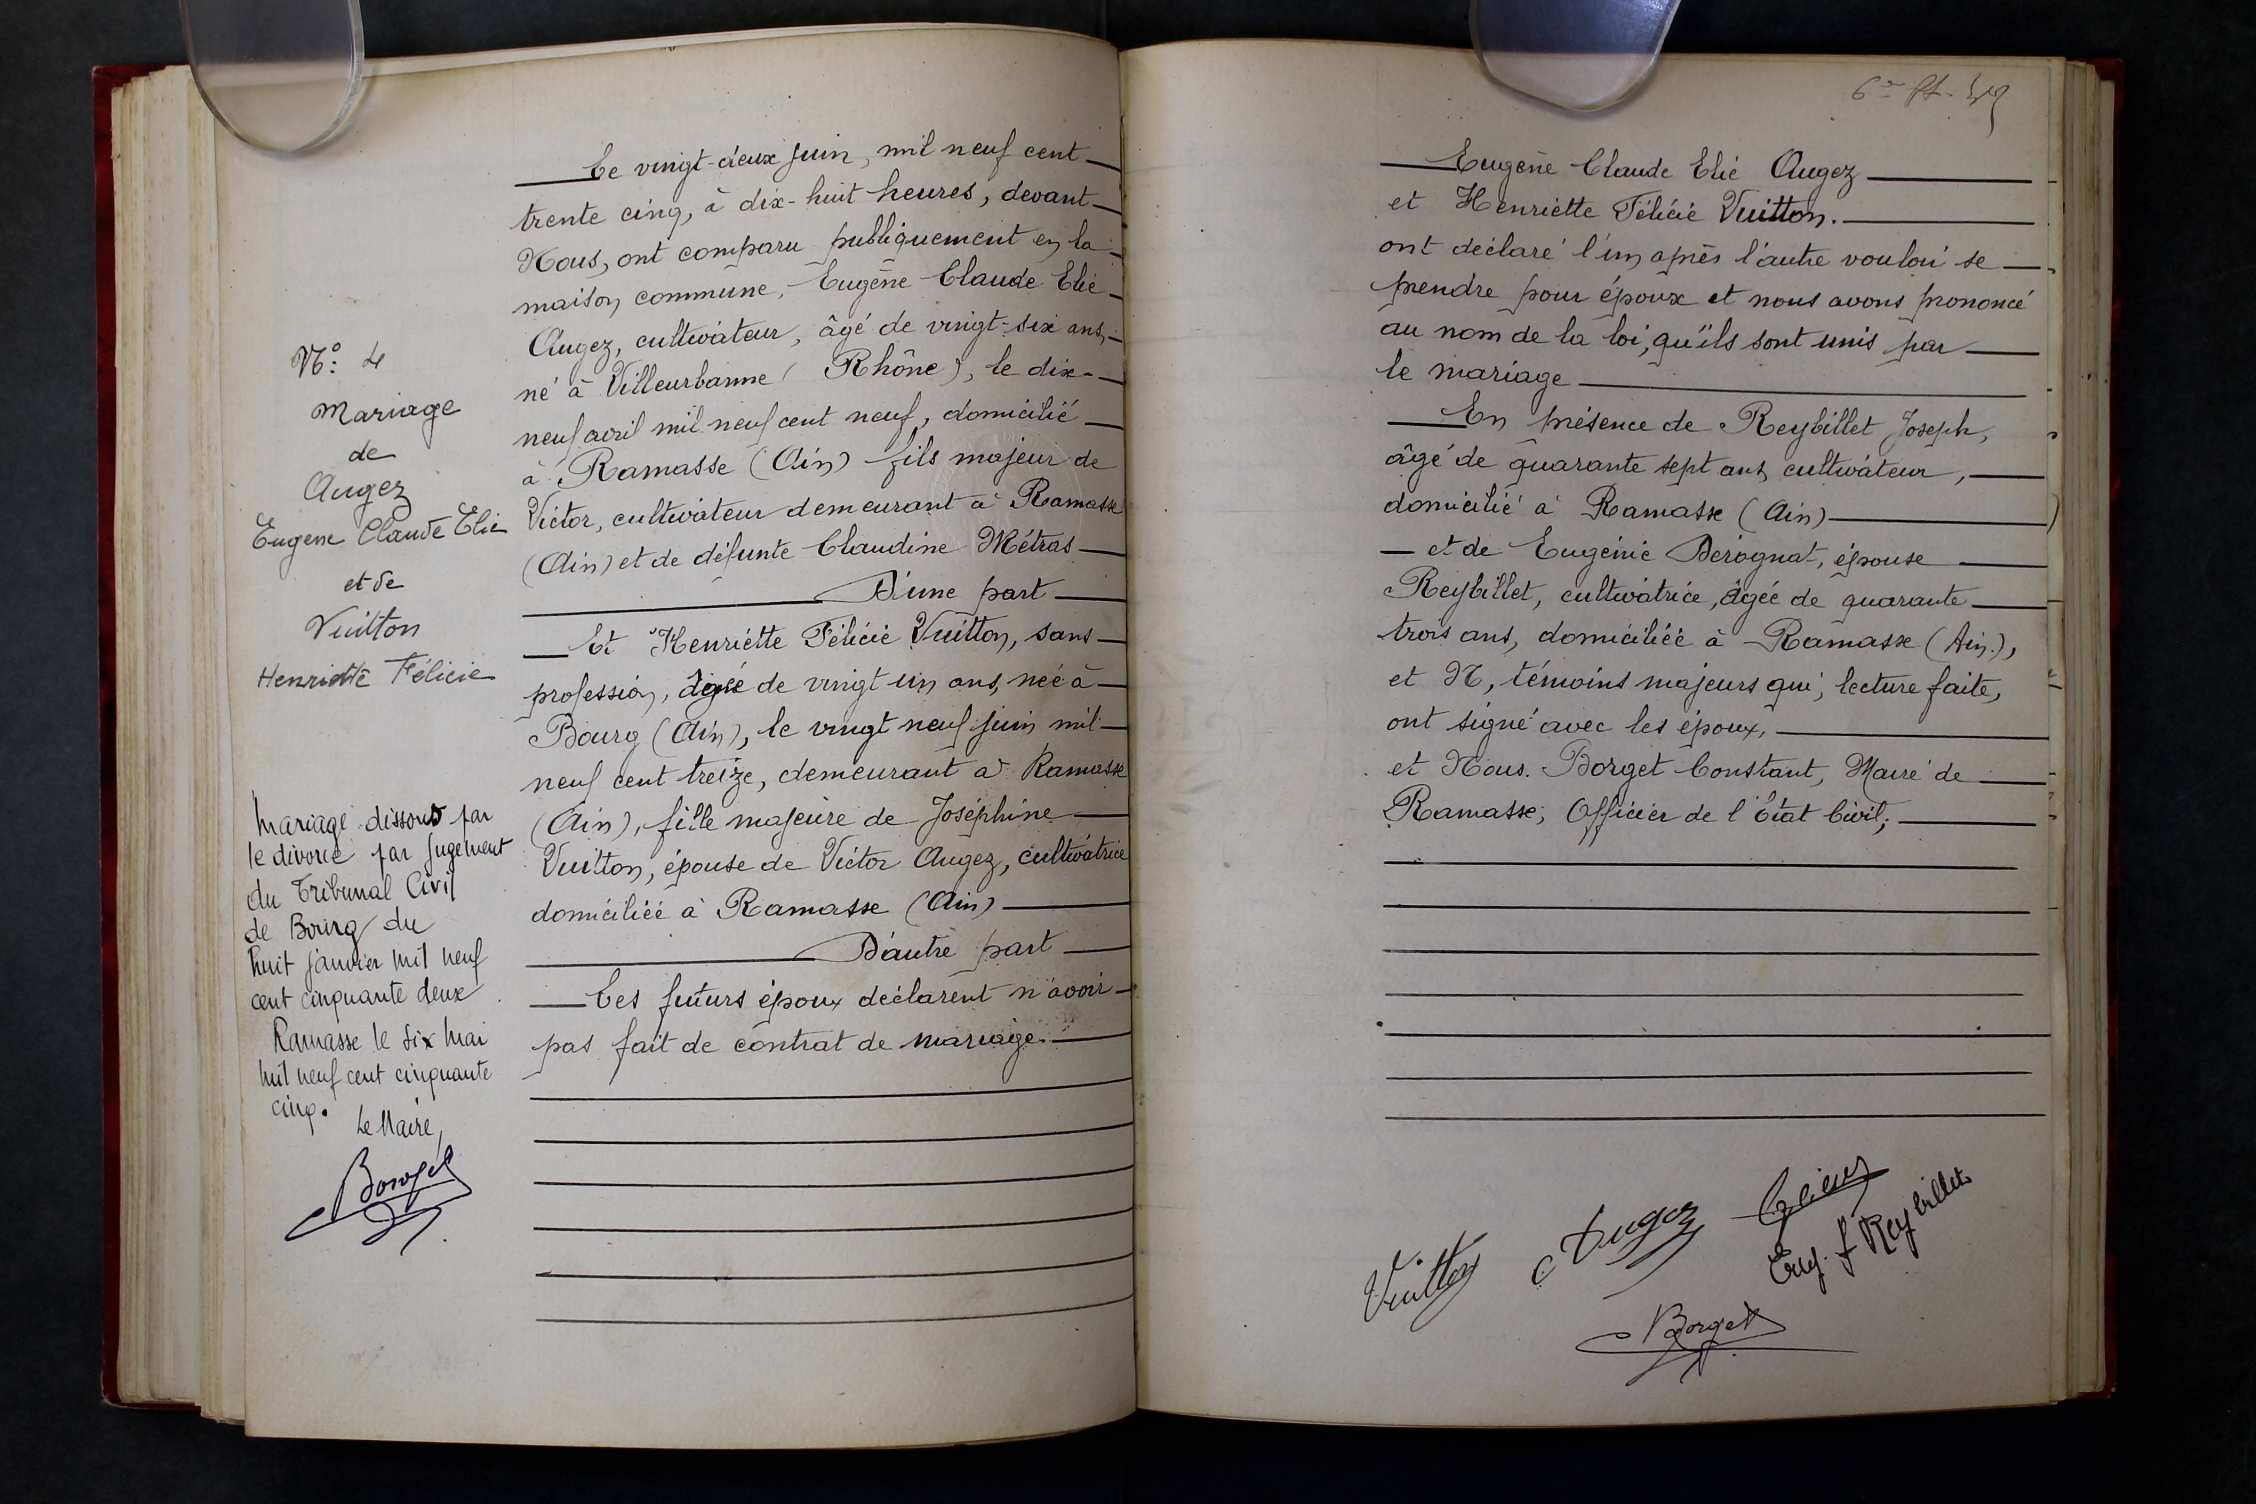 N°: 4
Mariage
de
Augez
Eugène Claude Elie
et de
Vuitton
Henriette Félicie
Mariage dissous par
le divorce par jugement
du Tribunal Civil
de Bourg du
huit janvier mil neuf
cent cinquante deux
Ramasse le six Mai
mil neuf cent cinquante
cinq.
Le Maire,
Borget
Le vingt-deux juin, mil neuf cent
trente cinq, à dix-huit heures, devant
Nous, ont comparu publiquement en la
maison commune, Eugène Claude Elie
Augez, cultivateur, âgé de vingt-six ans,
né à Villeurbanne (Rhône), le dix-
neuf avril mil neuf cent neuf, domicilié
à Ramasse (Ain) fils majeur de
Victor, cultivateur demeurant à Ramasse
(Ain) et de défunte Claudine Métras
D'une part
Et Henriette Félicie Vuitton, sans
profession, âgée de vingt un ans, née à
Bourg (Ain), le vingt neuf juin mil
neuf cent treize, demeurant à Ramasse
(Ain), fille majeure de Joséphine
Vuitton, épouse de Victor Augez, cultivatrice
domiciliée à Ramasse (Ain)
D'autre part
Les futurs époux déclarent n'avoir
pas fait de contrat de mariage.
Eugène Claude Elie Augez
et Henriette Félicie Vuitton.
ont déclaré l'un après l'autre vouloir se
prendre pour époux et nous avons prononcé
au nom de la loi, qu'ils sont unis par
le mariage
En présence de Reybillet Joseph,
âgé de quarante sept ans, cultivateur,
domicilié à Ramasse (Ain)
et de Eugénie Derognat, épouse
Reybillet, cultivatrice, âgée de quarante
trois ans, domiciliée à Ramasse (Ain.),
et N, témoins majeurs qui, lecture faite,
ont signé avec les époux,
et Nous. Borget Constant, Maire de
Ramasse, Officier de l'Etat Civil,
Vuitton
Augez
Eug. f Reybillet
Borget